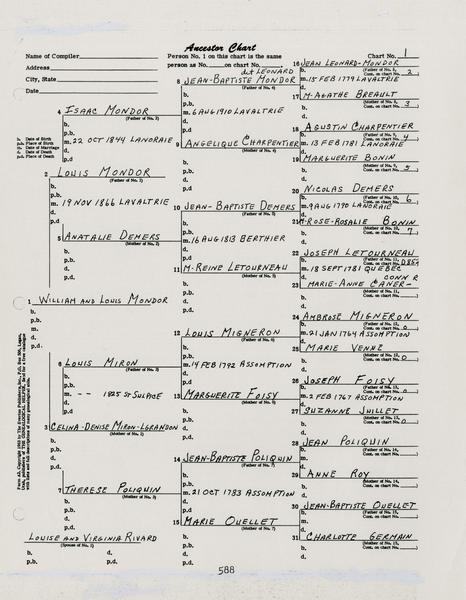 Ancestor Chart
Name of Compiler
Person No. 1 on this chart is the same
Chart No. 1
Address
person as No. on chart No.
City, State
Date
dit LEONARD
16 JEAN LEONARD-MONDOR
(Father of 8, Cont. on chart No. 2)
b.
m. 15 FEB 1779 LAVALTRIE
d.
8 JEAN-BAPTISTE MONDOR
(Father of 4)
b.
p.b.
m. 6 AUG 1910 LAVALTRIE
d.
p.d
17 M-AGATHE BREAULT
(Mother of 8, Cont. on chart No. 3)
b.
d.
4 ISAAC MONDOR
(Father of 2)
b.
p.b.
m. 22 OCT 1844 LANORAIE
d.
p.d
b. Date of Birth
p.b. Place of Birth
m. Date of Marriage
d. Date of Death
p.d. Place of Death
18 AGUSTIN CHARPENTIER
(Father of 9, Cont. on chart No. 4)
b.
m. 13 FEB 1781 LANORAIE
d.
9 ANGELIQUE CHARPENTIER
(Mother of 4)
b.
p.b.
d.
p.d
19 MARGUERITE BONIN
(Mother of 9, Cont. on chart No. 5)
b.
d.
2 LOUIS MONDOR
(Father of 1)
b.
p.b.
m. 19 NOV 1866 LAVALTRIE
d.
p.d
20 NICOLAS DEMERS
(Father of 10, Cont. on chart No. 6)
b.
m. 9 AUG 1790 LANORAIE
d.
10 JEAN-BAPTISTE DEMERS
(Father of 5)
b.
p.b.
m. 16 AUG 1813 BERTHIER
d.
p.d
21 M-ROSE-ROSALIE BONIN
(Mother of 10, Cont. on chart No. 7)
b.
d.
5 ANATALIE DEMERS
(Mother of 2)
b.
p.b.
d.
p.d
22 JOSEPH LETOURNEAU
(Father of 11, Cont. on chart No.
b.
m. 18 SEPT 1781 QUEBEC
d.
11 M-REINE LETOURNEAU
(Mother of 5)
b.
p.b.
d.
p.d
23 MARIE-ANNE CANER-
CONN R
(Mother of 11, Cont. on chart No.
b.
d.
1 WILLIAM AND LOUIS MONDOR
b.
p.b.
m.
d.
p.d.
24 AMBROSE MIGNERON
(Father of 12, Cont. on chart No. 0)
b.
m. 21 JAN 1764 ASSOMPTION
d.
12 LOUIS MIGNERON
(Father of 6)
b.
p.b.
m. 14 FEB 1792 ASSOMPTION
d.
p.d
25 MARIE VENNE
(Mother of 12, Cont. on chart No. 0)
b.
d.
6 LOUIS MIRON
(Father of 3)
b.
p.b.
m. -- 1825 ST SULPACE
d.
p.d
26 JOSEPH FOISY
(Father of 13, Cont. on chart No. 0)
b.
m. 2 FEB 1767 ASSOMPTION
d.
13 MARGUERITE FOISY
(Mother of 6)
b.
p.b.
d.
p.d
27 SUZANNE JUILLET
(Mother of 13, Cont. on chart No. 0)
b.
d.
3 CELINA-DENISE MIRON-LGRANDON
(Mother of 1)
b.
p.b.
d.
p.d
28 JEAN POLIQUIN
(Father of 14, Cont. on chart No.
b.
m.
d.
14 JEAN-BAPTISTE POLIQUIN
(Father of 7)
b.
p.b.
m. 21 OCT 1783 ASSOMPTION
d.
p.d
29 ANNE ROY
(Mother of 14, Cont. on chart No.
b.
d.
7 THERESE POLIQUIN
(Mother of 3)
b.
p.b.
d.
p.d
30 JEAN-BAPTISTE OUELLET
(Father of 15, Cont. on chart No.
b.
m.
d.
15 MARIE OUELLET
(Mother of 7)
b.
p.b.
d.
p.d
31 CHARLOTTE GERMAIN
(Mother of 15, Cont. on chart No.
b.
d.
LOUISE AND VIRGINIA RIVARD
(Spouse of No. 1)
b. d.
p.b. p.d.
588